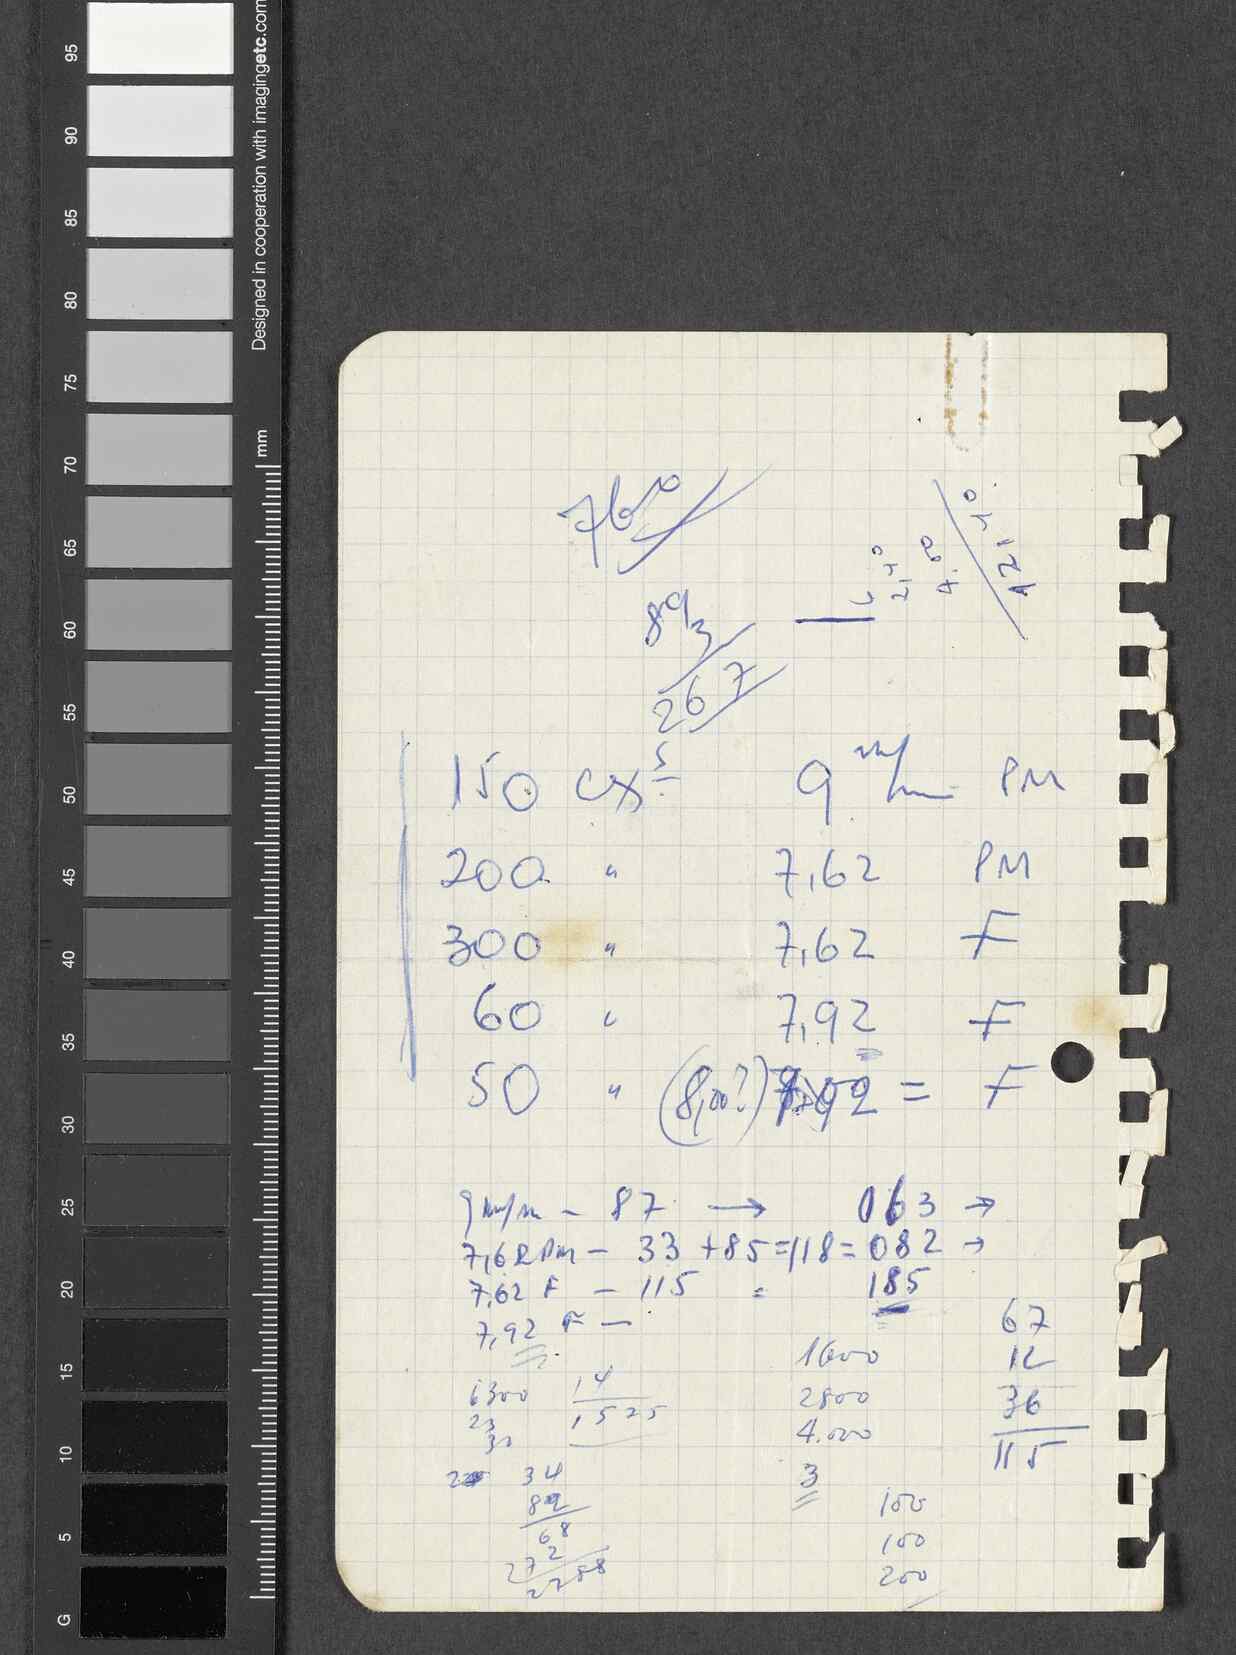 95
90
85
80
75
70
65
60
55
50
45
40
35
30
25
20
15
10
5
G
Designed in cooperation with imagingetc.com
mm
760
89
3
267
2,40
4.80
150 cxs 9 m/m PM
200 " 7,62 PM
300 " 7,62 F
60 " 7,92 F
50 " (8,00?) 7,92 = F
9 m/m - 87 → 063 →
7,62 PM - 33 + 85 = 118 = 082 →
7,62 F - 115 = 185
7,92 F -
67
12
36
115
1600
2800
4.000
3
6300 14
23 1525
30
34
82
68
272
2788
100
100
200